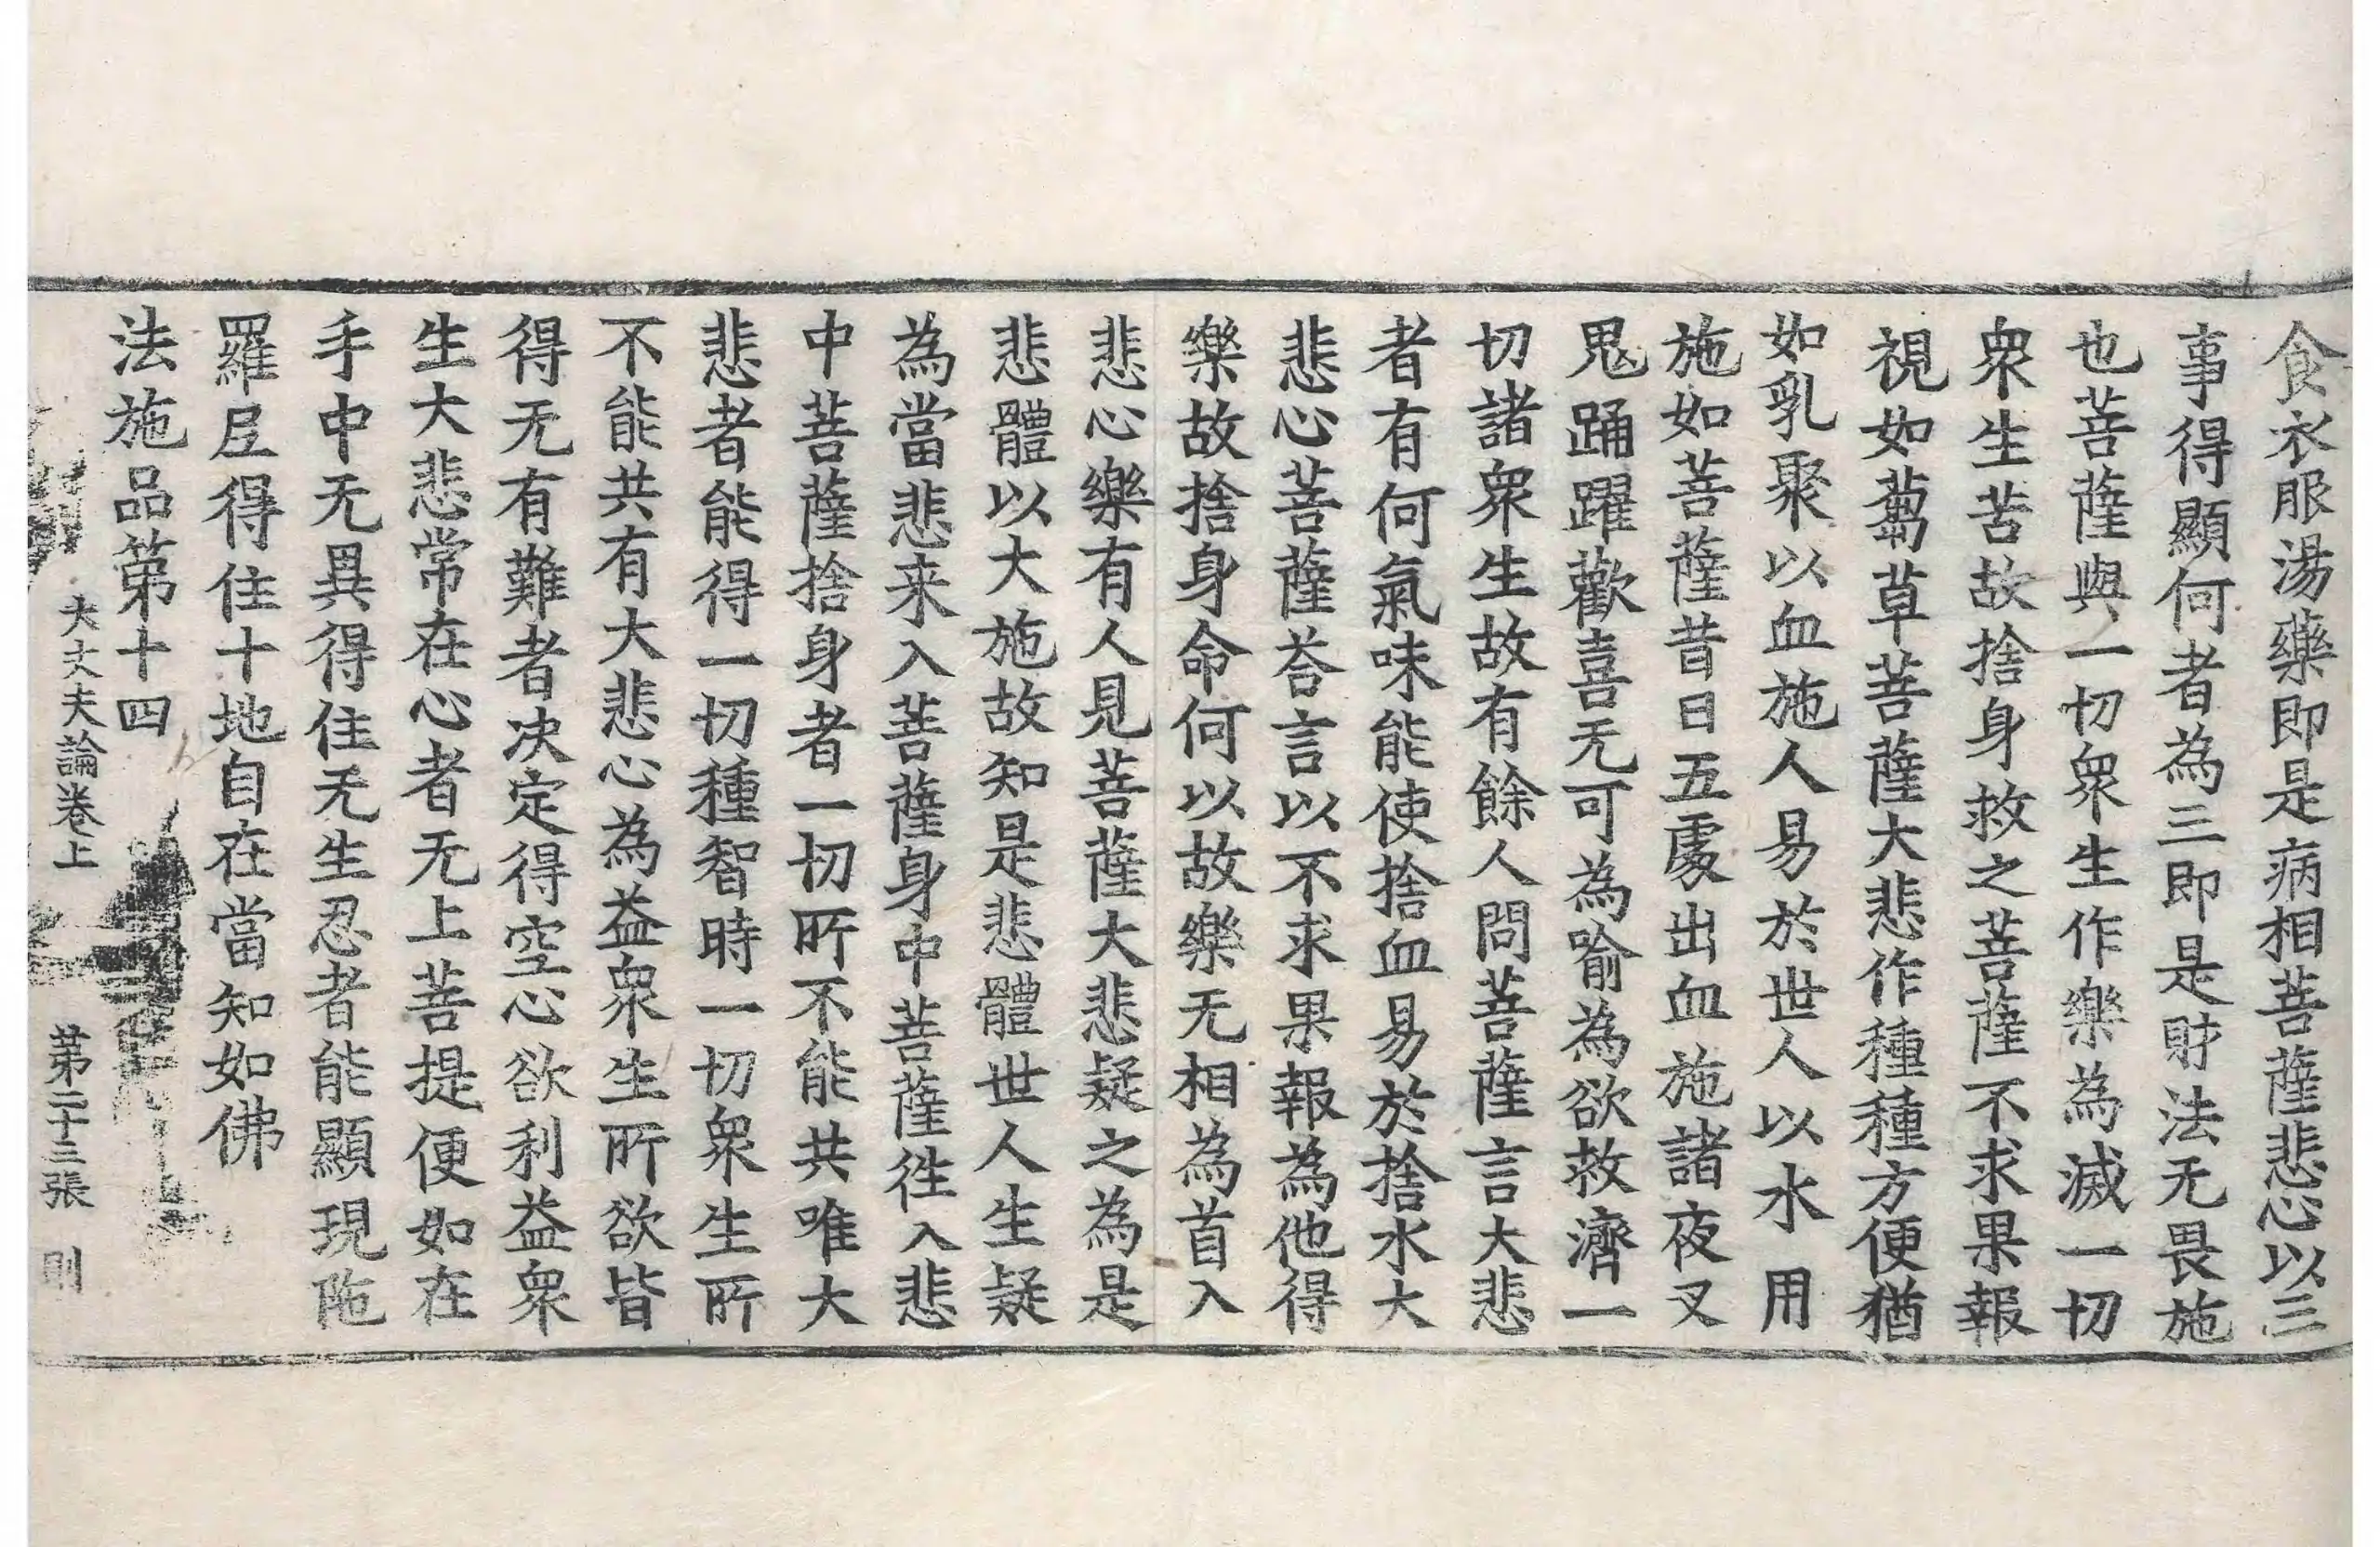 食衣服湯藥即是病相菩薩悲心以三
事得顯何者為三即是財法无畏施
也菩薩與一切眾生作樂為滅一切
眾生苦故捨身救之菩薩不求果報
視如蒭草菩薩大悲作種種方便猶
如乳聚以血施人易於世人以水用
施如菩薩昔日五處出血施諸夜叉
鬼踊躍歡喜无可為喻為欲救濟一
切諸眾生故有餘人問菩薩言大悲
者有何氣味能使捨血易於捨水大
悲心菩薩荅言以不求果報為他得
樂故捨身命何以故樂无相為首入
悲心樂有人見菩薩大悲疑之為是
悲體以大施故知是悲體世人生疑
為當悲来入菩薩身中菩薩徃入悲
中菩薩捨身者一切所不能共唯大
悲者能得一切種智時一切眾生所
不能共有大悲心為益眾生所欲皆
得无有難者决定得空心欲利益眾
生大悲常在心者无上菩提便如在
手中无異得住无生忍者能顯現陁
羅𡰱得住十地自在當知如佛
法施品第十四
大丈夫論卷上 第二十三張 則